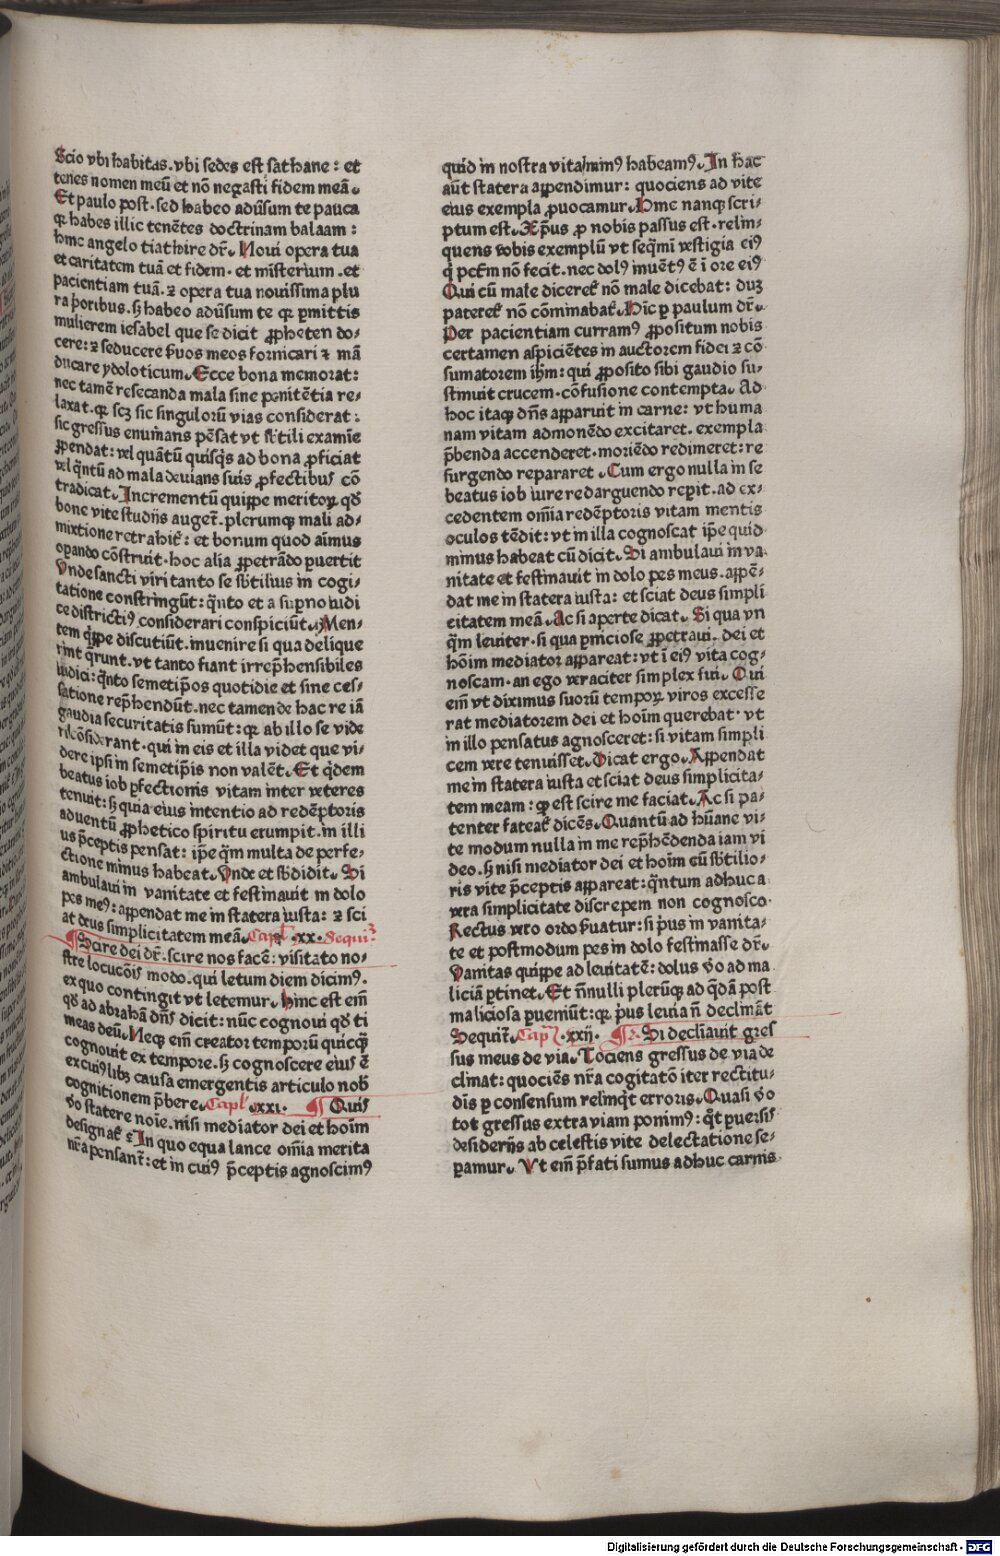 Scio vbi habitas. vbi sedes est sathane: et
tenes nomen meū et nō negasti fidem meā.
Et paulo post. sed habeo adūsum te pauca
qꝛ habes illic tenētes doctrinam balaam:
hinc angelo tiathire dr̄. Noui opera tua
et caritatem tuā et fidem. et misterium. et
pacientiam tuā. ⁊ opera tua nouissima plu
ra p̄oribus. sꝫ habeo adūsum te qꝛ ꝑmittis
mulierem iesabel que se dicit ꝓpheten do-
cere: ⁊ seducere s̄uos meos fornicari ⁊ mā
ducare ydoloticum. Ecce bona memorat:
nec tamē resecanda mala sine penitētia re-
laxat. qꝛ scꝫ sic singulorū vias considerat:
sic gressus enumans pēsat vt sb̄tili examīe
ꝓpendat: vel quātū quisqꝫ ad bona ꝓficiat
vel q̄ntū ad mala deuians suis ꝓfectibus cō
tradicat. Incrementū quippe meritoꝝ qd̄
bone vite studijs auget̄. plerumqꝫ mali ad-
mixtione retrahit̄: et bonum quod aīmus
opando cōstruit. hoc alia ꝑpetrādo puertit
Vnde sancti viri tanto se sb̄tilius in cogi-
tatione constringūt: q̄nto et a supno iudi
ce districtiꝰ considerari conspiciūt. Men-
tem q̄ppe discutiūt. inuenire si qua delique
rint q̄runt. vt tanto fiant irrep̄hensibiles
iudici: q̄nto semetip̄os quotidie et sine ces-
satione rep̄hendūt. nec tamen de hac re iā
gaudia securitatis sumūt: qꝛ ab illo se vide
ri cōsiderant. qui in eis et illa videt que vi-
dere ipsi in semetip̄is non valēt. Et q̄dem
beatus iob ꝑfectionis vitam inter veteres
tenuit: sꝫ quia eius intentio ad redēptoris
aduentū ꝓphetico spiritu erumpit. in illi
us p̄ceptis pensat: ip̄e q̄m multa de perfe-
ctione minus habeat. Vnde et sb̄didit. Si
ambulaui in vanitate et festinauit in dolo
pes meꝰ: appendat me in statera iusta: ⁊ sci
at deus simplicitatem meā. Capl̄. xx. Sequiꝉ
¶ Scire dei dr̄. scire nos facē: visitato no-
stre locucōis modo. qui letum diem dicimꝰ.
ex quo contingit vt letemur. Hinc est eīm
qd̄ ad abrahā dn̄s dicit: nūc cognoui qd̄ ti
meas deū. Neqꝫ eīm creator temporū quicqꝫ
cognouit ex tempore. sꝫ cognoscere eius ē
ex cuiꝰlibꝫ causa emergentis articulo nob̄
cognitionem p̄bere. Capl̄. xxi. ¶ Quis
v̄o statere noīe. nisi mediator dei et hoīm
designat̄: In quo equa lance oīmia merita
nr̄a pensant̄: et in cuiꝰ p̄ceptis agnoscimꝰ
quid in nostra vita minꝰ habeamꝰ. In hac
aūt statera appendimur: quociens ad vite
eius exempla ꝓuocamur. Hinc nanqꝫ scri-
ptum est. Xp̄us ꝓ nobis passus est. relin-
quens vobis exemplū vt seq̄mī vestigia eiꝰ
q̄ pctm̄ nō fecit. nec dolꝰ inuētꝰ ē ī ore eiꝰ
Qui cū male diceret̄ nō male dicebat: cuꝫ
pateret̄ nō cōminabat̄. Hīc ꝑ paulum dr̄.
Per pacientiam curramꝰ ꝓpositum nobis
certamen aspiciētes in auctorem fidei ⁊ cō
sumatorem ih̄m: qui ꝓposito sibi gaudio su-
stinuit crucem. cōfusione contempta. Ad
hoc itaqꝫ dn̄s apparuit in carne: vt huma
nam vitam admonēdo excitaret. exempla
p̄benda accenderet. moriēdo redimeret: re
surgendo repararet. Cum ergo nulla in se
beatus iob iure redarguendo repit. ad ex-
cedentem oīmia redēptoris vitam mentis
oculos tēdit: vt in illa cognoscat ip̄e quid
minus habeat cū dicit. Si ambulaui in va-
nitate et festinauit in dolo pes meus. appē-
dat me in statera iusta: et sciat deus simpli
citatem meā. Ac si aperte dicat. Si qua vn
q̄m leuiter. si qua pniciose ꝑpetraui. dei et
hoīm mediator appareat: vt ī eiꝰ vita cog-
noscam. an ego veraciter simplex fui. Qui
eīm vt diximus suorū tempoꝝ viros excesse
rat mediatorem dei et hoīm querebat. vt
in illo pensatus agnosceret: si vitam simpli
cem vere tenuisset. Dicat ergo. Appendat
me in statera iusta et sciat deus simplicita-
tem meam: qꝛ est scire me faciat. Ac si pa-
tenter fateat̄ dicēs. Quantū ad hūane vi-
te modum nulla in me rep̄hēdenda iam vi
deo. sꝫ nisi mediator dei et hoīm cū sb̄tilio-
ris vite p̄ceptis appareat: q̄ntum adhuc a
vera simplicitate discrepem non cognosco.
Rectus vero ordo s̄uatur: si p̄us in vanita-
te et postmodum pes in dolo festinasse dr̄.
Vanitas quippe ad leuitatē: dolus v̄o ad ma
liciā ꝑtinet. Et nōnulli plerūqꝫ ad q̄dā post
maliciosa ꝑueniūt: qꝛ p̄us leuia nō declināt
Sequit̄. Capl̄. xxij. ¶ Si decliauit gres
sus meus de via. Tociens gressus de via de
clinat: quociēs nr̄a cogitatō iter rectitu-
dīs ꝑ consensum relinqt erroris. Quasi v̄o
tot gressus extra viam ponimꝰ: qt̄ puersis
desiderijs ab celestis vite delectatione se-
pamur. Vt eīm p̄fati sumus adhuc carnis
Digitalisierung gefördert durch die Deutsche Forschungsgemeinschaft - DFG